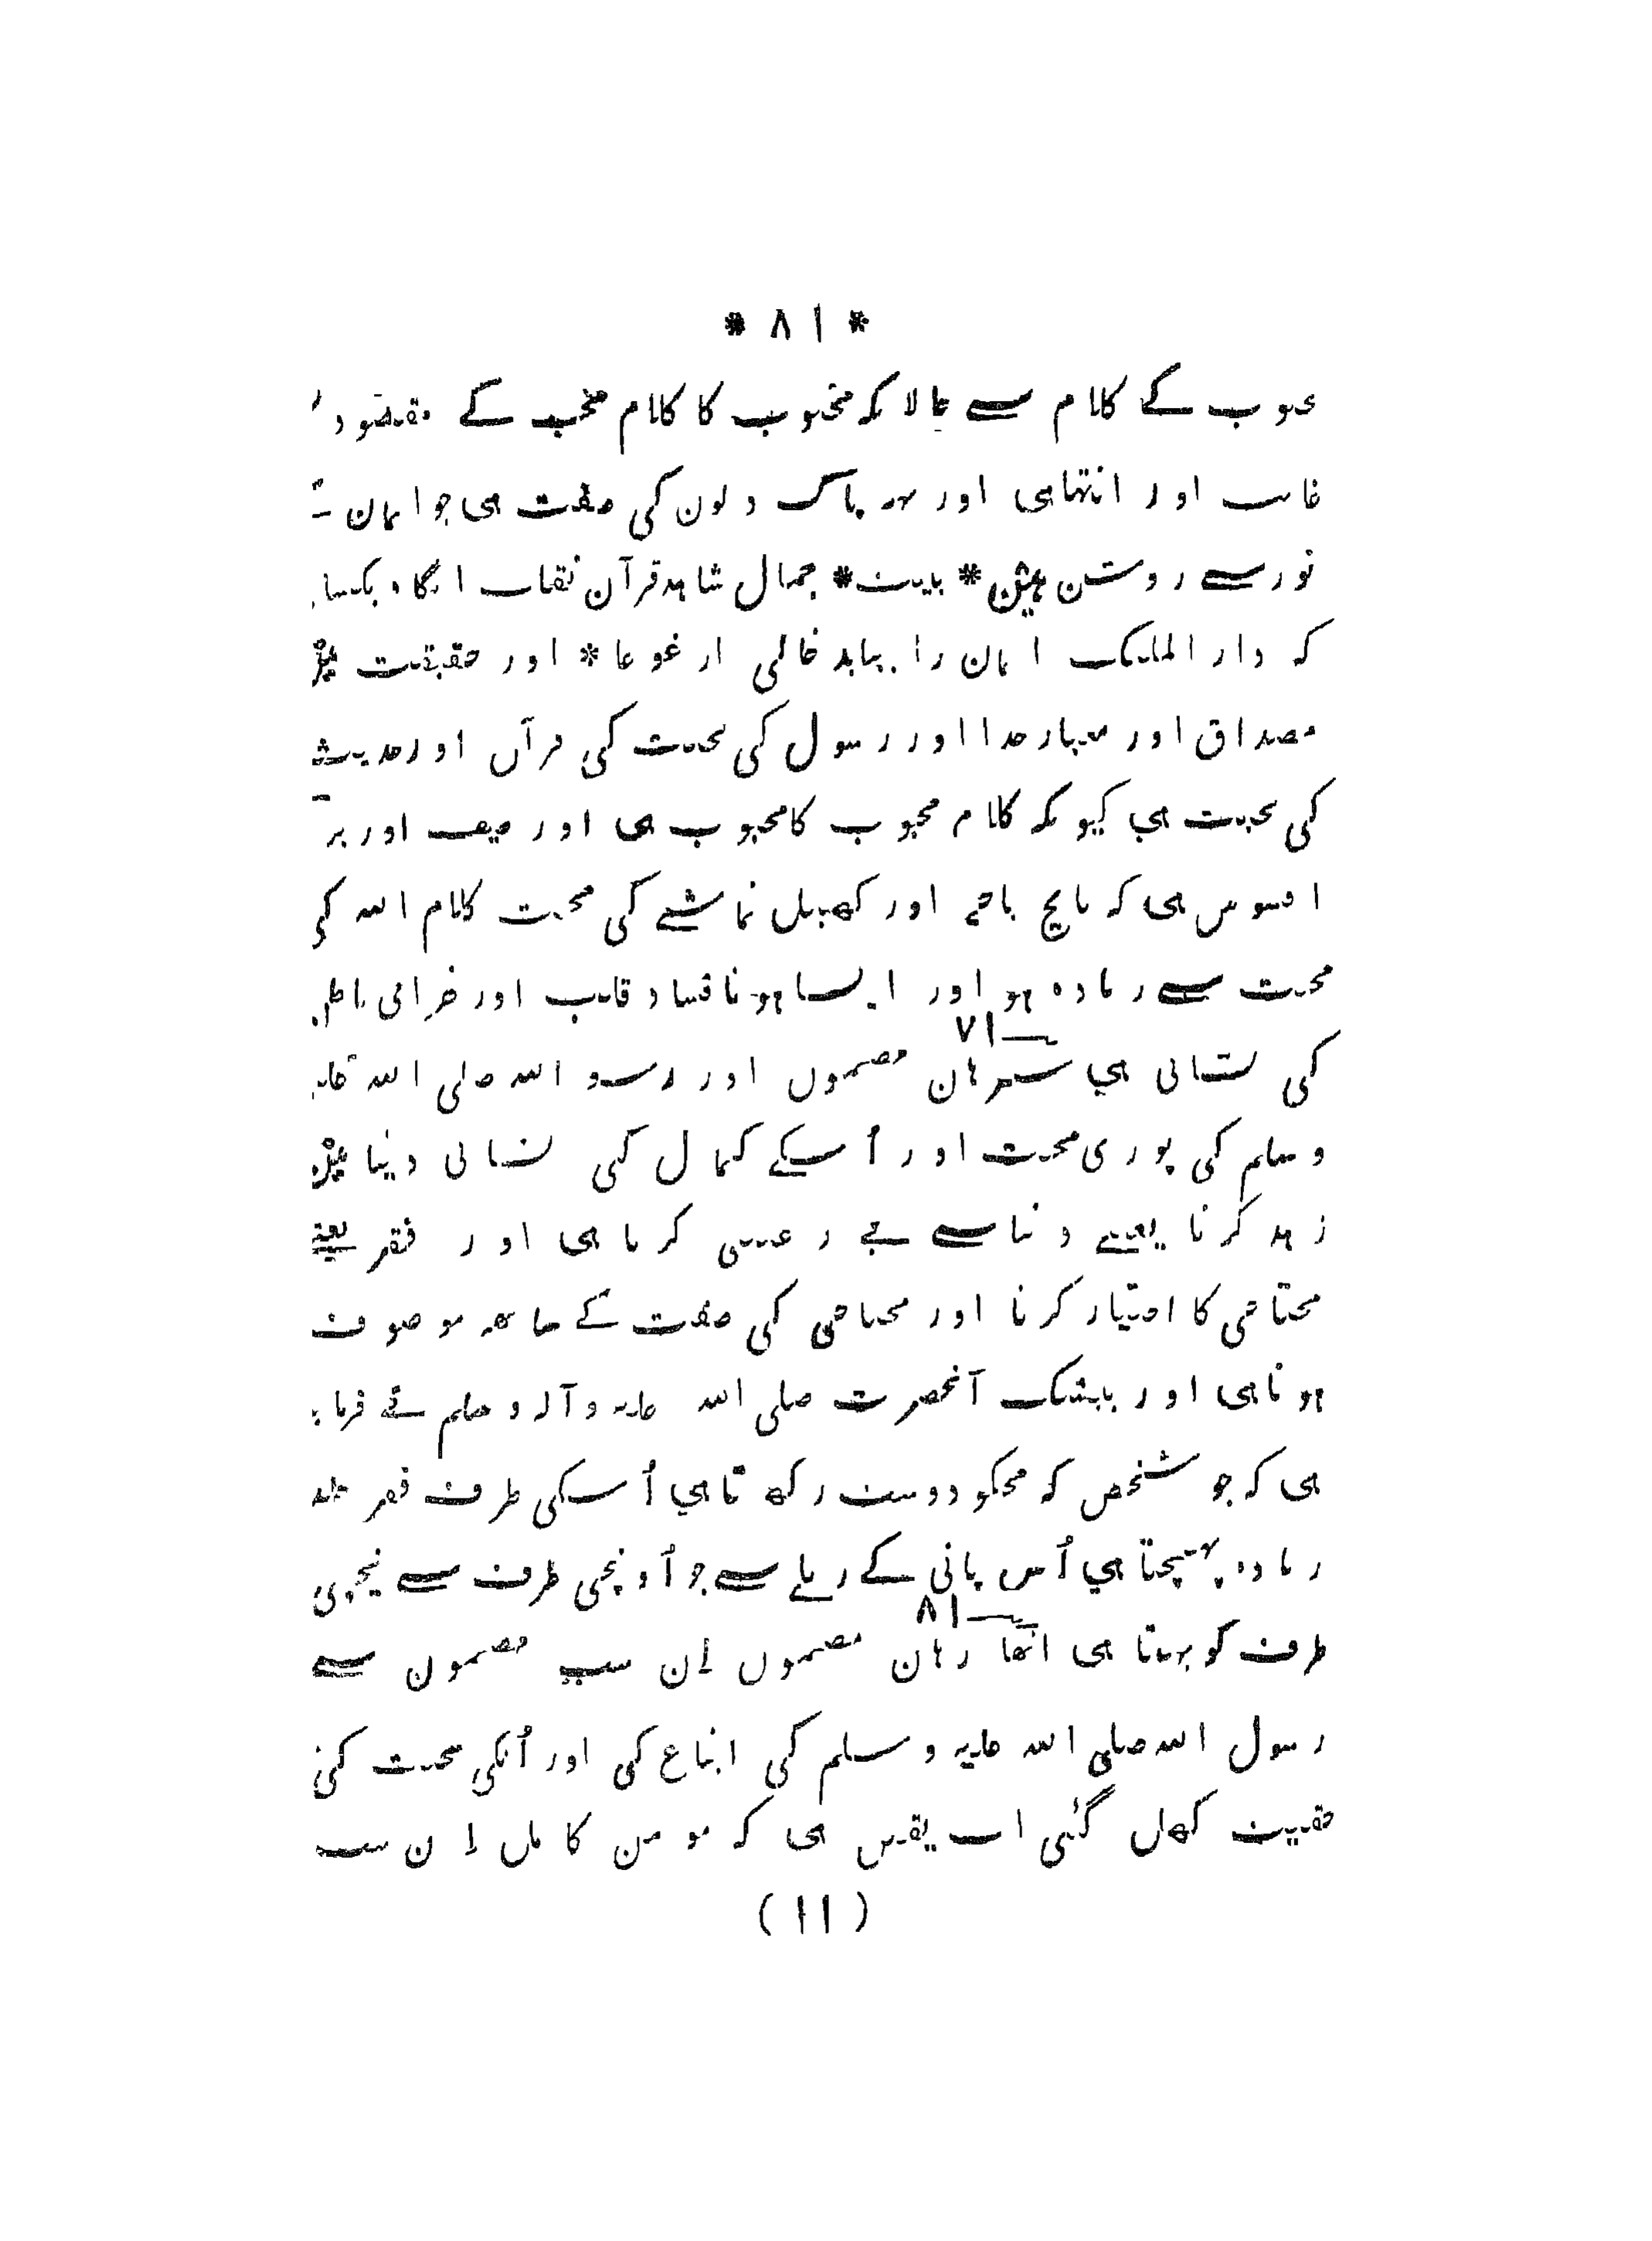 * ٨١ *
محبوب کے کلام سے حالانکہ محبوب کا کلام محب کے مقصود
غایت اور انتہا ہی اور یہ پاک دلون کی صفت ہی جو ایمان
نور سے روشن ہین * بیت * جمال شاہد قرآن نقاب انگاہ بکشاید
کہ دار الملک ایمان را بیابد خالی از غوغا * اور حقیقت مین
مصداق اور معیار خدا اور رسول کی محبت کی قرآن اور حدیث
کی محبت ہی کیونکہ کلام محبوب کا محبوب ہی اور حیف اور
افسوس ہی کہ ناچ باجے اور کھیل تماشے کی محبت کلام اللہ کی
محبت سے زیادہ ہو اور ایسا ہونا فساد قلب اور خرابی باطن
کی نشانی ہی سترہان ١٧ مضمون اور رسو اللہ صلی اللہ علیہ
وسلم کی پوری محبت اور اُسکے کمال کی نشانی دنیا مین
زہد کرنا یعنے دنیا سے بے رغبتی کرنا ہی اور فقر یعنے
محتاجی کا اختیار کرنا اور محتاجی کی صفت کے ساتھہ موصوف
ہونا ہی اور بیشک آنحضرت صلی اللہ علیہ و آلہ وسلم نے فرمایا
ہی کہ جو شخص کہ مجکو دوست رکھتا ہی اُسکی طرف فقر جلد
زیادہ پہنچتا ہی اُس پانی کے ریلے سے جو اُونچی طرف سے نیچی
طرف کو بہتا ہی اٹھارہان ١٨ مضمون اِن سب مضمون سے
رسول اللہ صلی اللہ علیہ وسلم کی اتباع کی اور اُنکی محبت کی
حقیقت کھل گئی اب یقین ہی کہ مومن کامل اِن سب
( ١١ )